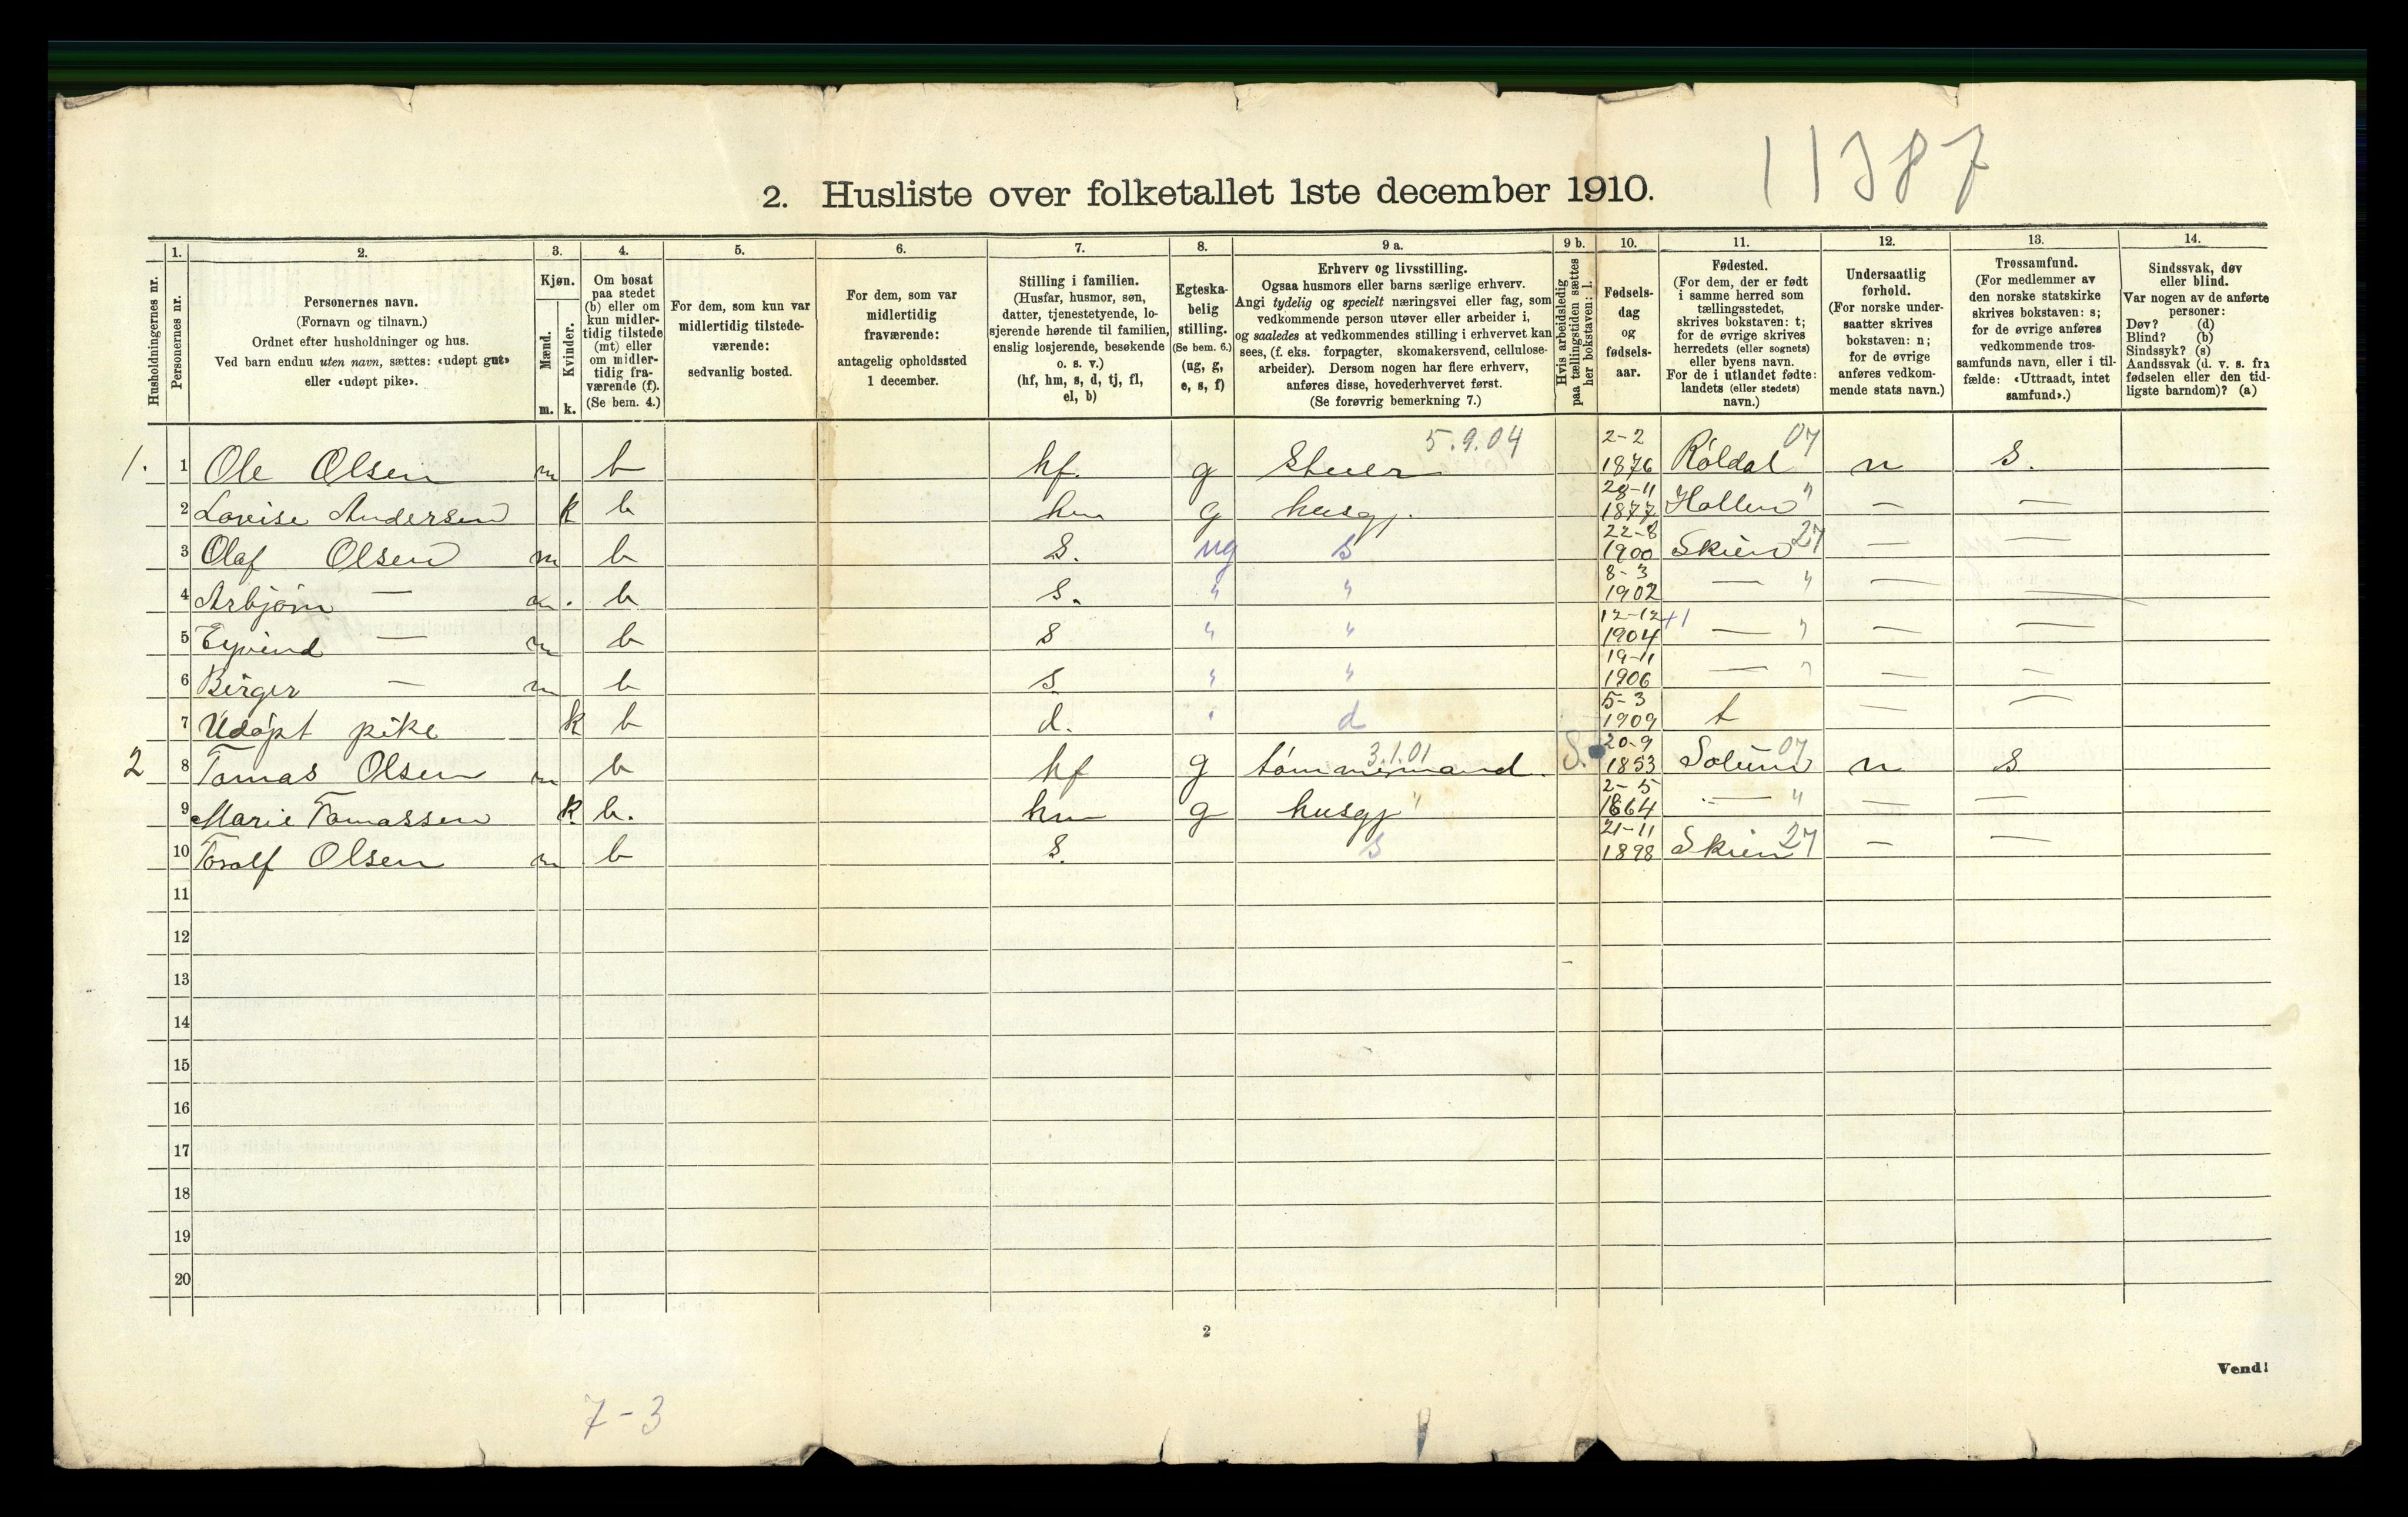 11387
2. Husliste over folketallet 1ste december 1910.
Husholdningernes nr.
1. Personernes nr.
2. Personernes navn.
(Fornavn og tilnavn.)
Ordnet efter husholdninger og hus.
Ved barn endnu uten navn, sættes: «udøpt gut»
eller «udøpt pike».
3. Kjøn.
Mænd. m.
Kvinder. k.
4. Om bosat
paa stedet
(b) eller om
kun midler-
tidig tilstede
(mt) eller
om midler-
tidig fra-
værende (f).
(Se bem. 4.)
5. For dem, som kun var
midlertidig tilstede-
værende:
sedvanlig bosted.
6. For dem, som var
midlertidig
fraværende:
antagelig opholdssted
1 december.
7. Stilling i familien.
(Husfar, husmor, søn,
datter, tjenestetyende, lo-
sjerende hørende til familien,
enslig losjerende, besøkende
o. s. v.)
(hf, hm, s, d, tj, fl,
el, b)
8. Egteska-
belig
stilling.
(Se bem. 6.)
(ug, g,
e, s, f)
9 a. Erhverv og livsstilling.
Ogsaa husmors eller barns særlige erhverv.
Angi tydelig og specielt næringsvei eller fag, som
vedkommende person utøver eller arbeider i,
og saaledes at vedkommendes stilling i erhvervet kan
sees, (f. eks. forpagter, skomakersvend, cellulose-
arbeider). Dersom nogen har flere erhverv,
anføres disse, hovederhvervet først.
(Se forøvrig bemerkning 7.)
9 b. Hvis arbeidsledig
paa tællingstiden sættes
her bokstaven: l.
10. Fødsels-
dag
og
fødsels-
aar.
11. Fødested.
(For dem, der er født
i samme herred som
tællingsstedet,
skrives bokstaven: t;
for de øvrige skrives
herredets (eller sognets)
eller byens navn.
For de i utlandet fødte:
landets (eller stedets)
navn.)
12. Undersaatlig
forhold.
(For norske under-
saatter skrives
bokstaven: n;
for de øvrige
anføres vedkom-
mende stats navn.)
13. Trossamfund.
(For medlemmer av
den norske statskirke
skrives bokstaven: s;
for de øvrige anføres
vedkommende tros-
samfunds navn, eller i til-
fælde: «Uttraadt, intet
samfund».)
14. Sindssvak, døv
eller blind.
Var nogen av de anførte
personer:
Døv? (d)
Blind? (b)
Sindssyk? (s)
Aandssvak (d. v. s. fra
fødselen eller den tid-
ligste barndom)? (a)
1. 1 Ole Olsen m b hf. g 5.9.04 2-2 1876 Røldal 07 n s.
2 Lovise Andersen k b hm g husgj. 28-11 1877 Hollen " — —
3 Olaf Olsen m b s. ug s 22-8 1900 Skien 27 — —
4 Asbjørn — m. b s. " " 8-3 1902 — " — —
5 Eyvind — m b s " " 12-12 +1 1904 — " — —
6 Birger — m b s. " " 19-11 1906 — " — —
7 Udøpt pike k b d. " d 5-3 1909 t — —
2 8 Tomas Olsen m b hf g tømmermand. 3.1.01 S. 20-9 1853 Solum 07 n s
9 Marie Tomassen k b. hm g husgj " 2-5 1864 — " — —
10 Toralf Olsen m b s. s 21-11 1898 Skien 27 — —
11
12
13
14
15
16
17
18
19
20
2
Vend!
7-3